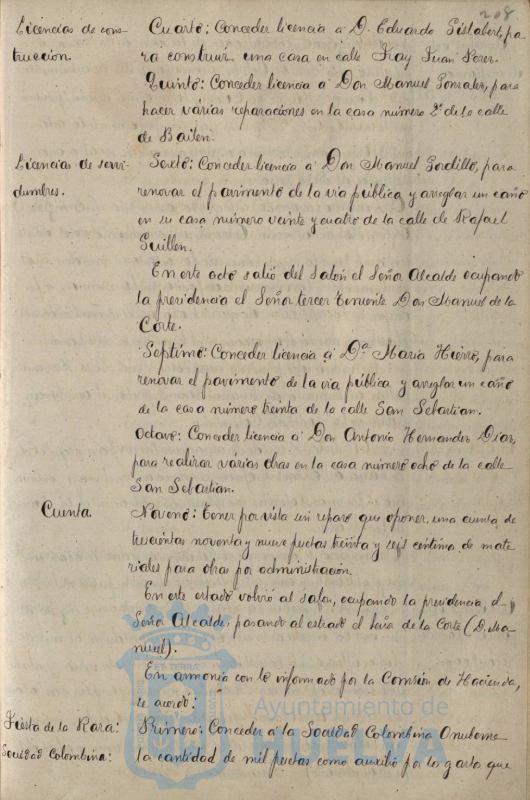 208
Licencias de cons-
trucción.
Cuarto: Conceder licencia á D. Eduardo Gistabert, pa-
ra construir una casa en calle Fray Juan Perez.
Quinto: Conceder licencia á Don Manuel Gonzalez, para
hacer várias reparaciones en la casa número 2º de la calle
de Bailén.
Licencias de servi-
dumbres.
Sexto: Conceder licencia á Don Manuel Gordillo, para
renovar el pavimento de la via pública y arreglar un caño
en su casa número veinte y cuatro de la calle de Rafael
Guillen.
En este acto salió del salón el Señor Alcalde ocupando
la presidencia el Señor tercer teniente Don Manuel de la
Corte.
Septimo: Conceder licencia á Dª Maria Hierro, para
renovar el pavimento de la via pública y arreglar un caño
de la casa número treinta de la calle San Sebastian.
Octavo: Conceder licencia á Don Antonio Hernandez Diaz,
para realizar várias obras en la casa número ocho de la calle
San Sebastian.
Cuenta
Noveno: tener por vista sin reparo que oponer, una cuenta de
trescientas noventa y nueve pesetas treinta y seis centimos de mate-
riales para obras por administración.
En este estado volvió al salon, ocupando la presidencia, el
Señor Alcalde; pasando al estrado el Señor de la Corte (D. Ma-
nuel).
En armonia con lo informado por la Comisión de Hacienda,
se acordó:
Fiesta de la Raza:
Sociedad Colombina:
Primero: Conceder á la Sociedad Colombina Onubense
la cantidad de mil pesetas como auxilio por los gastos que
Ayuntamiento de
HUELVA